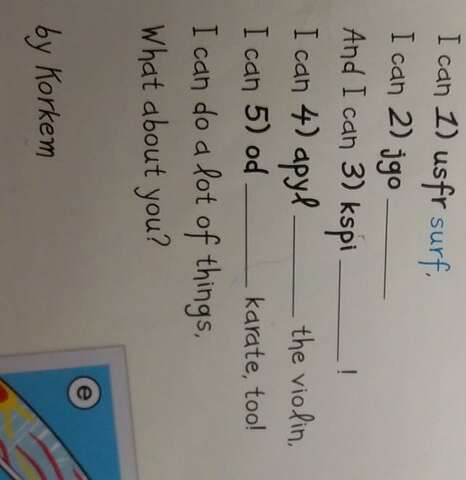 I can 1) usfr surf,
I can 2) jgo ______
And I can 3) kspi ______!
I can 4) apyl ______ the violin,
I can 5) od ______ karate, too!
I can do a lot of things,
What about you?
by Korkem
e